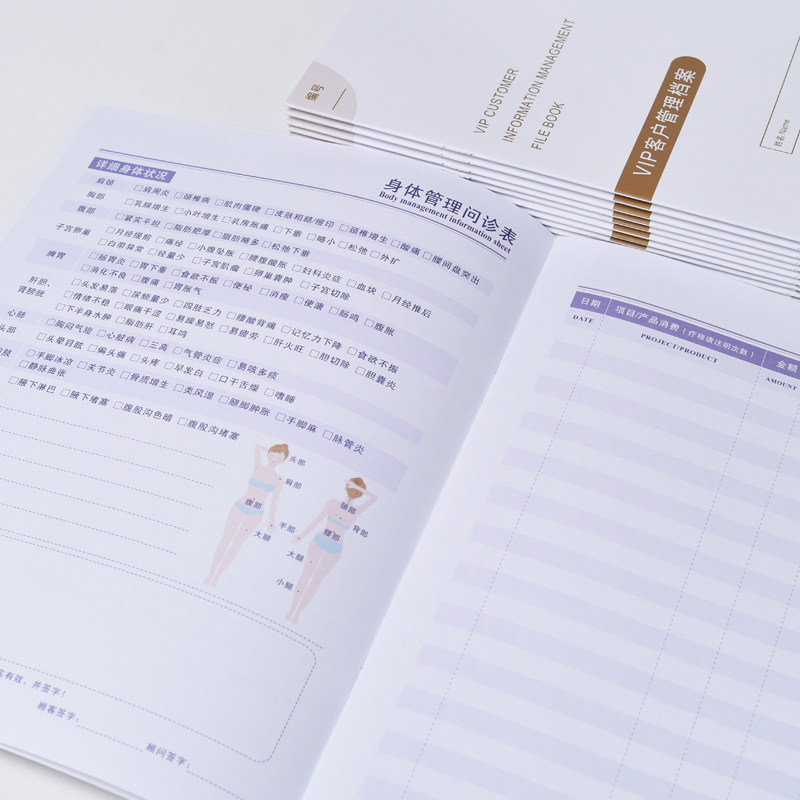 编号
VIP CUSTOMER
INFORMATION MANAGEMENT
FILE BOOK
VIP客户管理档案
姓名 Name
身体管理问诊表
Body management information sheet
详细身体状况
肩颈 □肩周炎 □颈椎病 □肌肉僵硬 □皮肤粗糙/瘀印 □颈椎增生 □酸痛 □腰间盘突出
胸部 □乳腺增生 □小叶增生 □乳房胀痛 □下垂 □略小 □松弛 □外扩
腹部 □紧实平坦 □脂肪肥厚 □脂肪略多 □松弛下垂
子宫卵巢 □月经提前 □痛经 □小腹坠胀 □腰腹酸胀 □妇科炎症 □血块 □月经推后
□白带异常 □经量少 □子宫肌瘤 □卵巢囊肿 □子宫切除
脾胃 □肠胃炎 □胃下垂 □食欲不振 □便秘 □消瘦 □便溏 □肠鸣 □腹胀
□消化不良 □腹痛 □胃胀气
肝胆、
肾膀胱 □头发易落 □尿频量少 □四肢乏力 □腰酸背痛 □记忆力下降 □食欲不振
□情绪不稳 □眼痛干涩 □易躁易怒 □易疲劳 □肝火旺 □胆切除 □胆囊炎
□下半身水肿 □脂肪肝 □耳鸣
心肺 □胸闷气短 □心脏病 □三高 □气管炎症 □易咳多痰
头部 □头晕目眩 □偏头痛 □头疼 □早发白 □口干舌燥 □嗜睡
□手脚冰凉 □关节炎 □骨质增生 □类风湿 □腿脚肿胀 □手脚麻 □脉管炎
□静脉曲张
□腋下淋巴 □腋下堵塞 □腹股沟色暗 □腹股沟堵塞
头部
肩部
腹部
手部
大腿
颈部
背部
腰部
大腿
小腿
实有效，并签字！
顾客签字：
顾问签字：
日期 项目/产品消费（疗程请注明次数） 金额
DATE PROJECT/PRODUCT AMOUNT